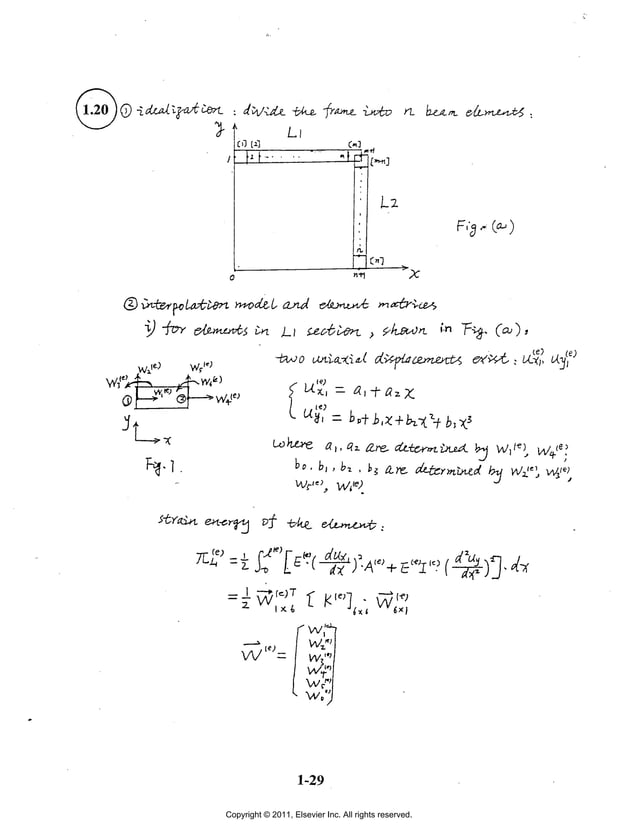 1.20 ① idealization : divide the frame into n beam elements :
y L1
[1] [2] [m] m+1
1 2 m [m+1]
L2
Fig. (a)
n [n]
0 n+1 x
② interpolation model and element matrices
i) for elements in L1 section, shown in Fig. (a),
two uniaxial displacements exist : Ux1^(e), Uy1^(e)
W2^(e) W5^(e)
W3^(e) W1^(e) W6^(e)
① ② W4^(e)
y x
Fig. 1.
{ Ux1^(e) = a1 + a2 x
Uy1^(e) = b0 + b1 x + b2 x^2 + b3 x^3
where a1, a2 are determined by W1^(e), W4^(e);
b0, b1, b2, b3 are determined by W2^(e), W3^(e),
W5^(e), W6^(e).
strain energy of the element :
π^(e) = 1/2 ∫0^l(e) [E^(e)·(dUx1/dx)^2·A^(e) + E^(e)I^(e)·(d^2Uy/dx^2)^2]·dx
= 1/2 W^(e)T 1×6 [K^(e)] 6×6 · W^(e) 6×1
W^(e) = [ W1^(e)
W2^(e)
W3^(e)
W4^(e)
W5^(e)
W6^(e) ]
1-29
Copyright © 2011, Elsevier Inc. All rights reserved.